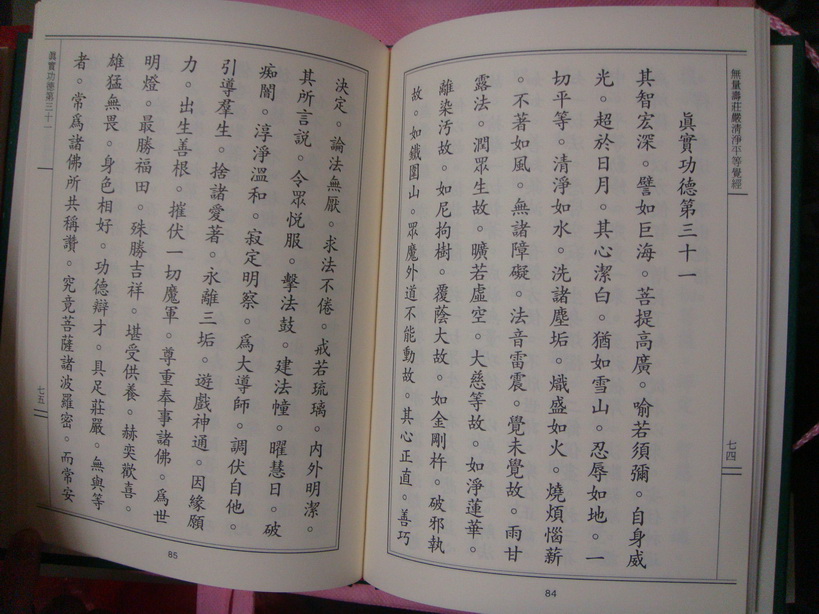 無量壽莊嚴清淨平等覺經
七四
眞實功德第三十一
其智宏深。譬如巨海。菩提高廣。喻若須彌。自身威
光。超於日月。其心潔白。猶如雪山。忍辱如地。一
切平等。清淨如水。洗諸塵垢。熾盛如火。燒煩惱薪
。不著如風。無諸障礙。法音雷震。覺未覺故。雨甘
露法。潤眾生故。曠若虛空。大慈等故。如淨蓮華。
離染汚故。如尼拘樹。覆蔭大故。如金剛杵。破邪執
故。如鐵圍山。眾魔外道不能動故。其心正直。善巧
84
決定。論法無厭。求法不倦。戒若琉璃。內外明潔。
其所言說。令眾悅服。擊法鼓。建法幢。曜慧日。破
痴闇。淳淨溫和。寂定明察。爲大導師。調伏自他。
引導羣生。捨諸愛著。永離三垢。遊戲神通。因緣願
力。出生善根。摧伏一切魔軍。尊重奉事諸佛。爲世
明燈。最勝福田。殊勝吉祥。堪受供養。赫奕歡喜。
雄猛無畏。身色相好。功德辯才。具足莊嚴。無與等
者。常爲諸佛所共稱讚。究竟菩薩諸波羅密。而常安
眞實功德第三十一
七五
85